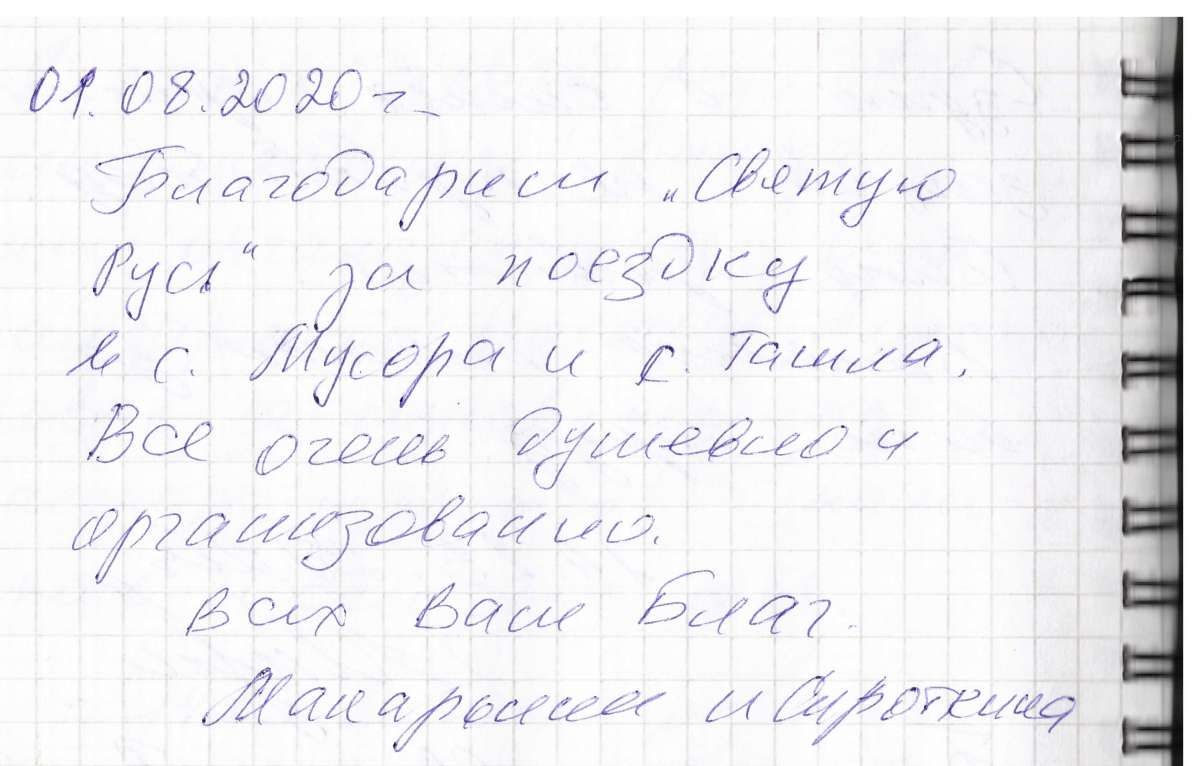 01.08.2020 г.
Благодарим „Святую
Русь" за поездку
в с. Мусорка и с. Ташла.
Все очень душевно и
организованно.
Всех Вам Благ.
и Сироткина